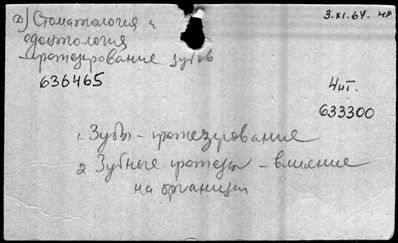 д) Стоматология и
одонтология
— протезирование зубов
3.XI.64. НР
636465
Чит.
633300
1. Зубы - протезирование
2 Зубные протезы - влияние
на организм